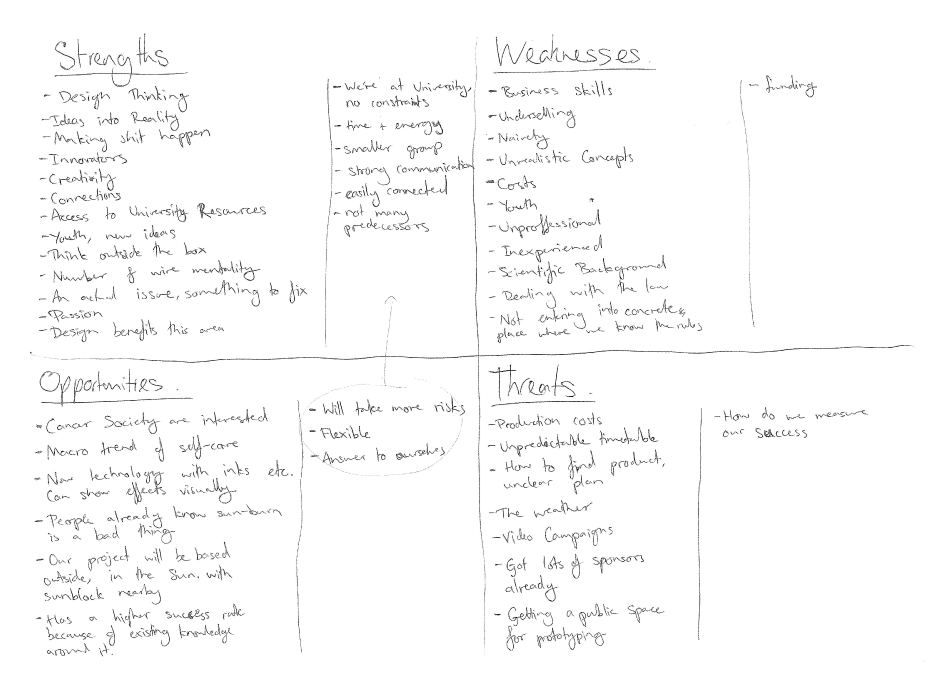 Strengths
- Design Thinking
- Ideas into Reality
- Making shit happen
- Innovators
- Creativity
- Connections
- Access to University Resources
- Youth, new ideas
- Think outside the box
- Number 8 wire mentality
- An actual issue, something to fix
- Passion
- Design benefits this area
- We're at University,
no constraints
- time + energy
- smaller group
- strong communication
- easily connected
- not many
predecessors
Weaknesses
- Business skills
- Underselling
- Naivety
- Unrealistic Concepts
- Costs
- Youth
- Unproffessional
- Inexperienced
- Scientific Background
- Dealing with the law
- Not entering into concrete
place where we know the rules
- funding
Opportunities.
- Cancer Society are interested
- Macro trend of self-care
- New technology with inks etc.
Can show effects visually
- People already know sun-burn
is a bad thing
- Our project will be based
outside, in the Sun, with
sunblock nearby
- Has a higher success rate
because of existing knowledge
around it.
- Will take more risks
- Flexible
- Answer to ourselves
Threats
- Production costs
- Unpredictable timetable
- How to find product,
unclear plan
- The weather
- Video Campaigns
- Got lots of sponsors
already
- Getting a public space
for prototyping
- How do we measure
our success